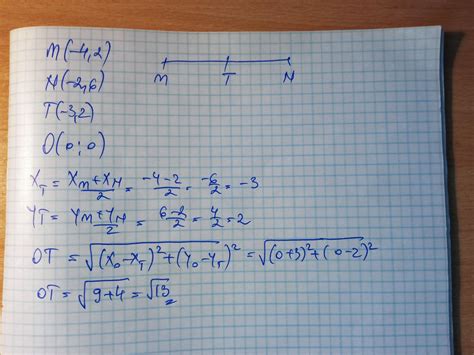 M(-4,2)
M T N
N(-2,6)
T(-3,2)
O(0;0)
X_T = \frac{X_M+X_N}{2} = \frac{-4-2}{2} = \frac{-6}{2} = -3
Y_T = \frac{Y_M+Y_N}{2} = \frac{6-2}{2} = \frac{4}{2} = 2
OT = \sqrt{(X_0-X_T)^2+(Y_0-Y_T)^2} = \sqrt{(0+3)^2+(0-2)^2}
OT = \sqrt{9+4} = \sqrt{13}